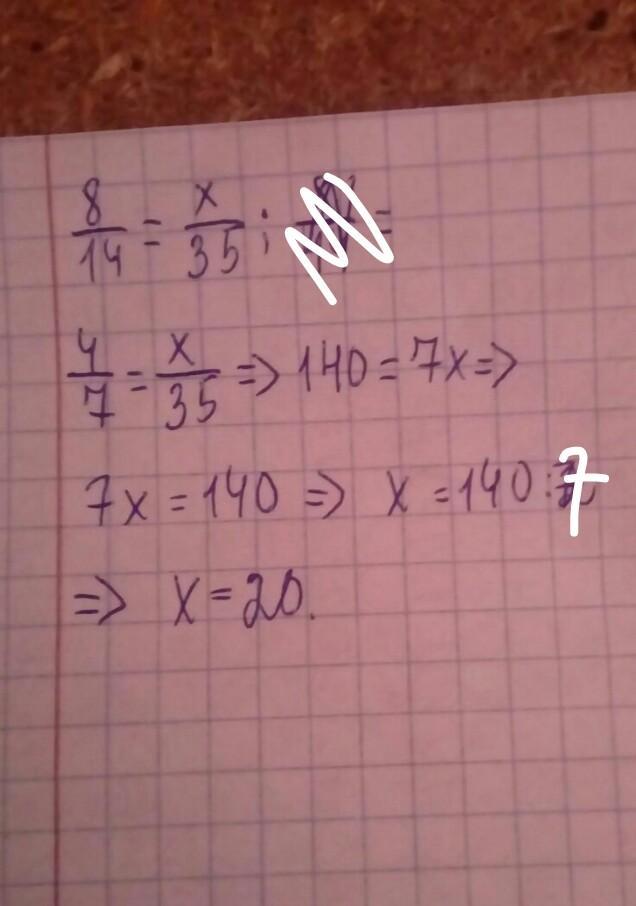 8/14 = x/35 ; =
4/7 = x/35 => 140 = 7x =>
7x = 140 => x = 140 : 7
=> x = 20.